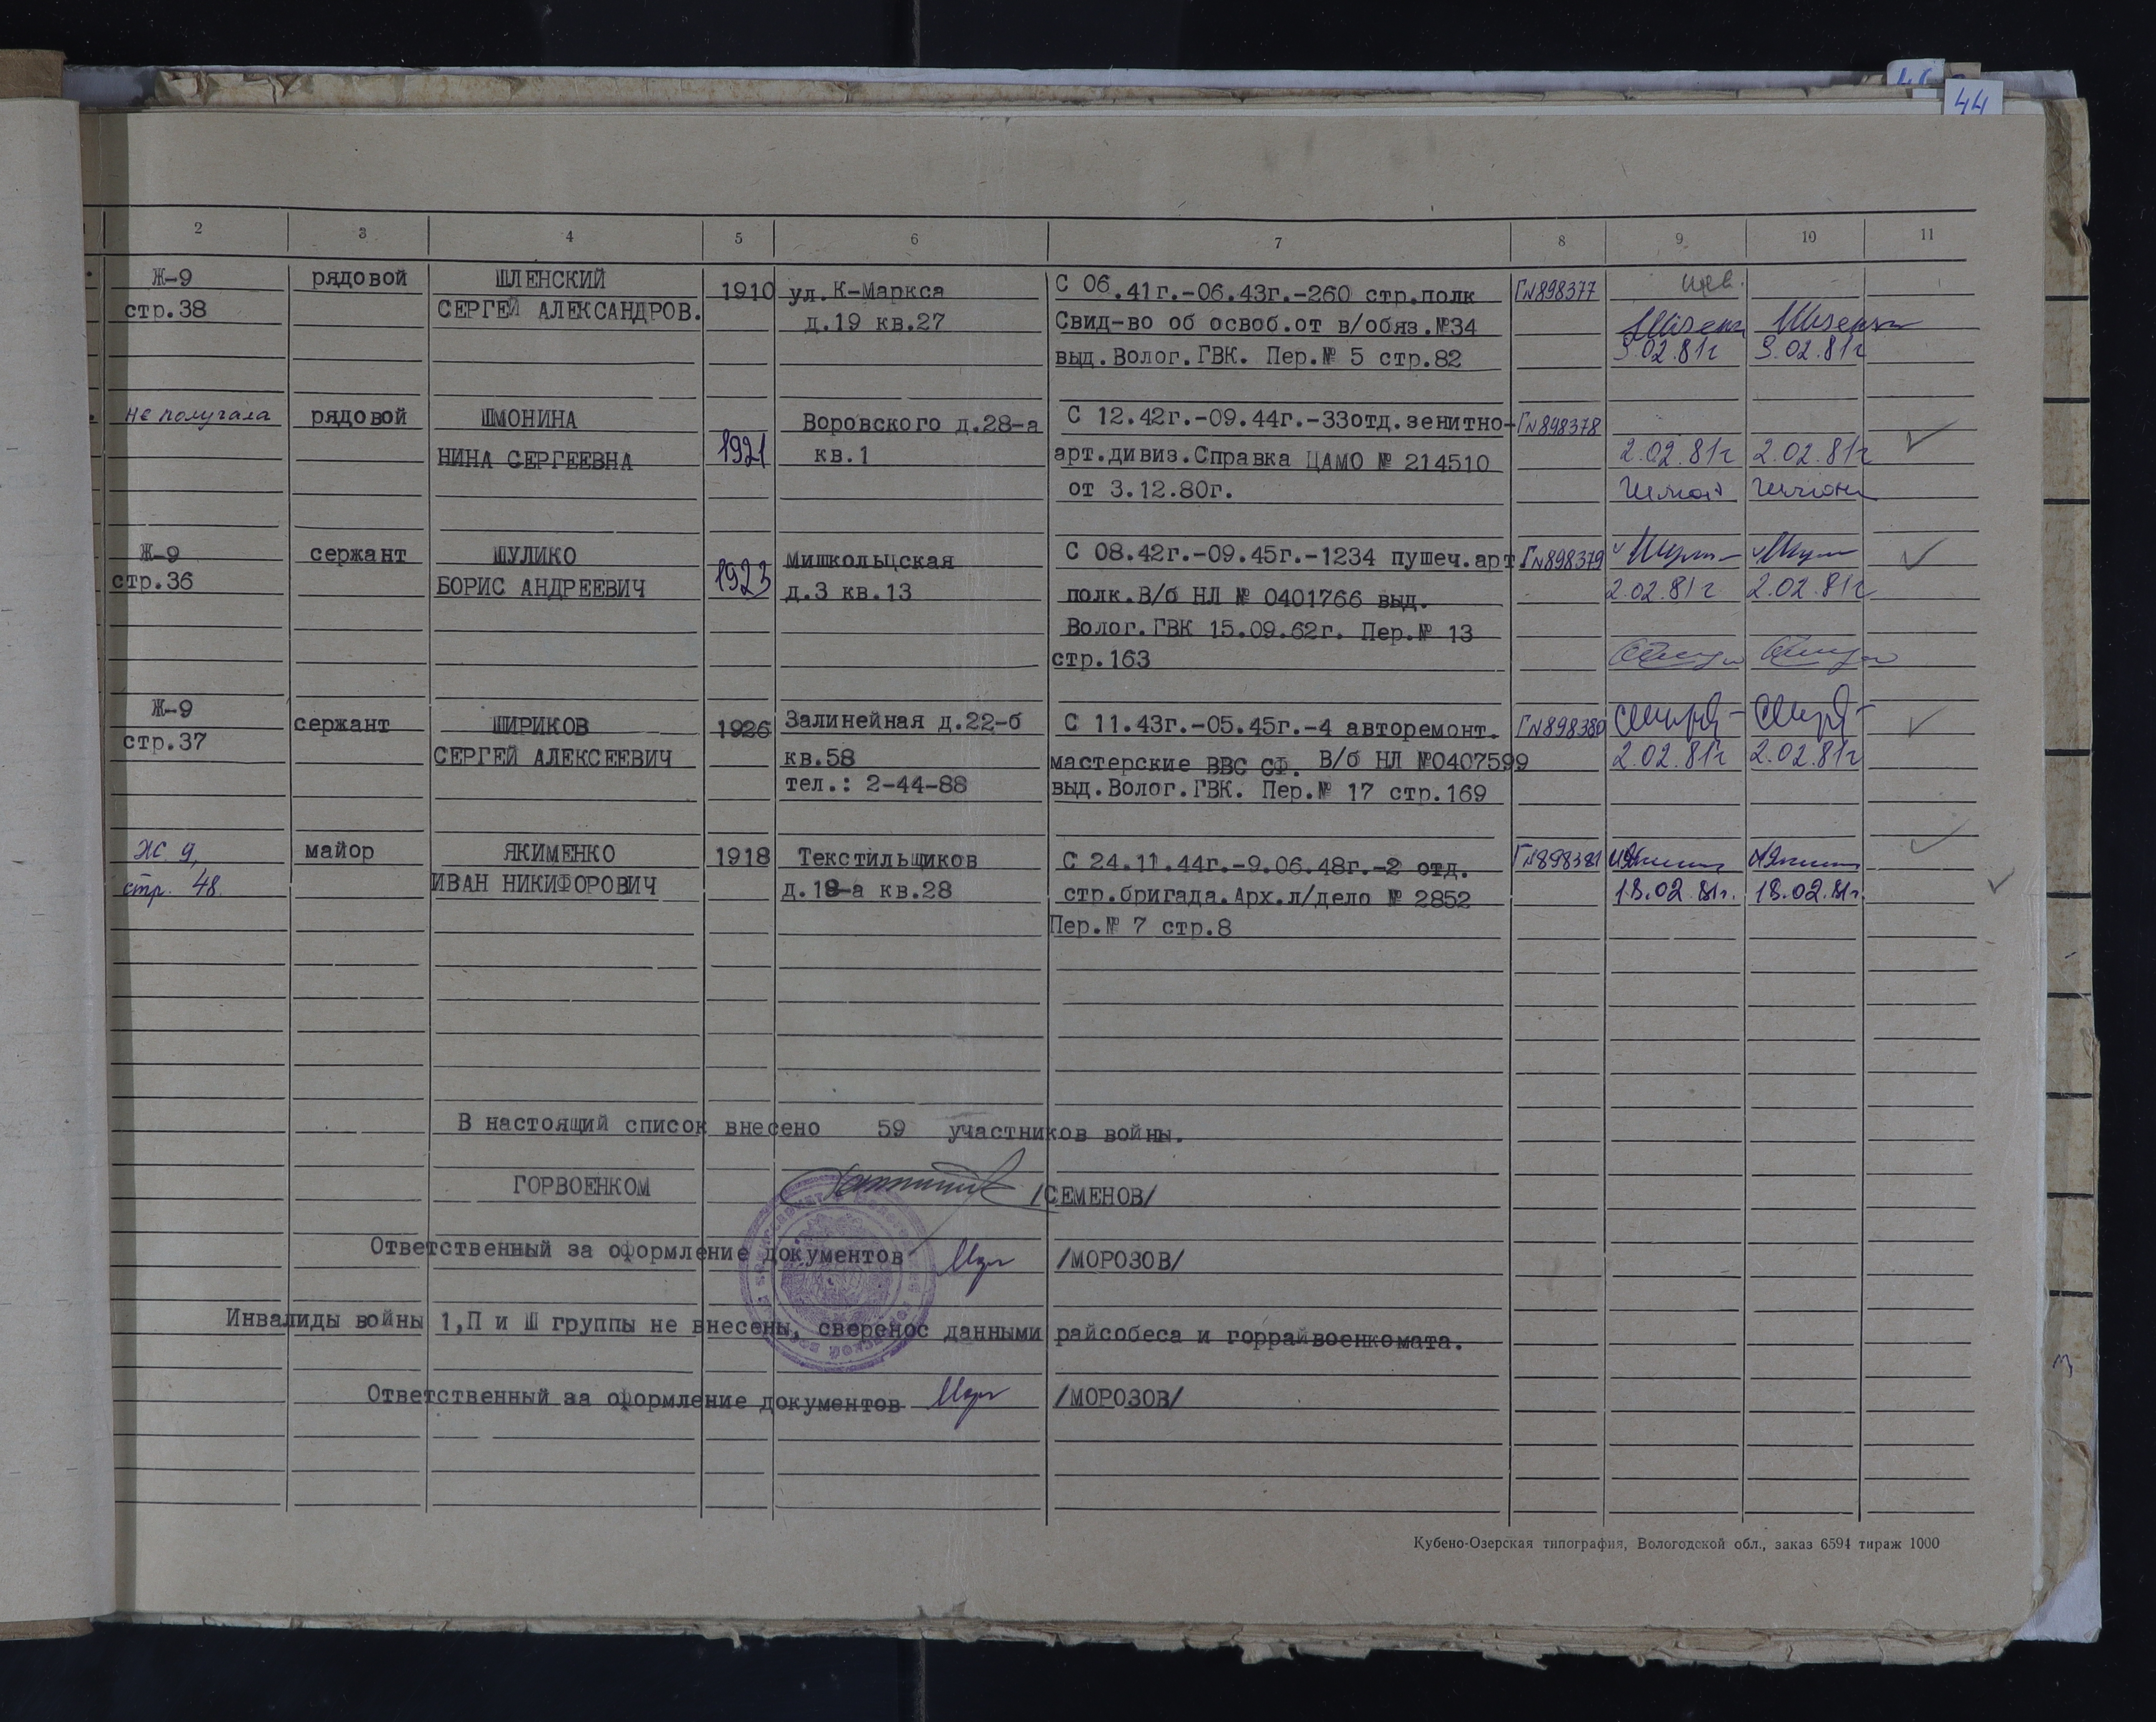 44
2 3 4 5 6 7 8 9 10 11
Ж-9 рядовой ШЛЕНСКИЙ 1910 ул. К-Маркса С 06.41г.-06.43г.-260 стр.полк Г№898377 инв.
стр.38 СЕРГЕЙ АЛЕКСАНДРОВ. д.19 кв.27 Свид-во об освоб.от в/обяз.№34
выд.Волог.ГВК. Пер.№ 5 стр.82 3.02.81г 3.02.81г
не получала рядовой ШМОНИНА Воровского д.28-а С 12.42г.-09.44г.-33отд.зенитно- Г№898378
НИНА СЕРГЕЕВНА 1921 кв.1 арт.дивиз.Справка ЦАМО № 214510 2.02.81г 2.02.81г
от 3.12.80г.
Ж-9 сержант ШУЛИКО Мишкольцская С 08.42г.-09.45г.-1234 пушеч.арт Г№898379
стр.36 БОРИС АНДРЕЕВИЧ 1923 д.3 кв.13 полк.В/б НЛ № 0401766 выд. 2.02.81г 2.02.81г
Волог.ГВК 15.09.62г. Пер.№ 13
стр.163
Ж-9 сержант ШИРИКОВ 1926 Залинейная д.22-б С 11.43г.-05.45г.-4 авторемонт. Г№898380
стр.37 СЕРГЕЙ АЛЕКСЕЕВИЧ кв.58 мастерские ВВС СФ. В/б НЛ №0407599 2.02.81г 2.02.81г
тел.: 2-44-88 выд.Волог.ГВК. Пер.№ 17 стр.169
Ж 9, майор ЯКИМЕНКО 1918 Текстильщиков С 24.11.44г.-9.06.48г.-2 отд. Г№898381
стр. 48. ИВАН НИКИФОРОВИЧ д.18-а кв.28 стр.бригада.Арх.л/дело № 2852 18.02.81г. 18.02.81г.
Пер.№ 7 стр.8
В настоящий список внесено 59 участников войны.
ГОРВОЕНКОМ /СЕМЕНОВ/
Ответственный за оформление документов /МОРОЗОВ/
Инвалиды войны 1,П и Ш группы не внесены, сверенос данными райсобеса и горрайвоенкомата.
Ответственный за оформление документов /МОРОЗОВ/
Кубено-Озерская типография, Вологодской обл., заказ 6594 тираж 1000